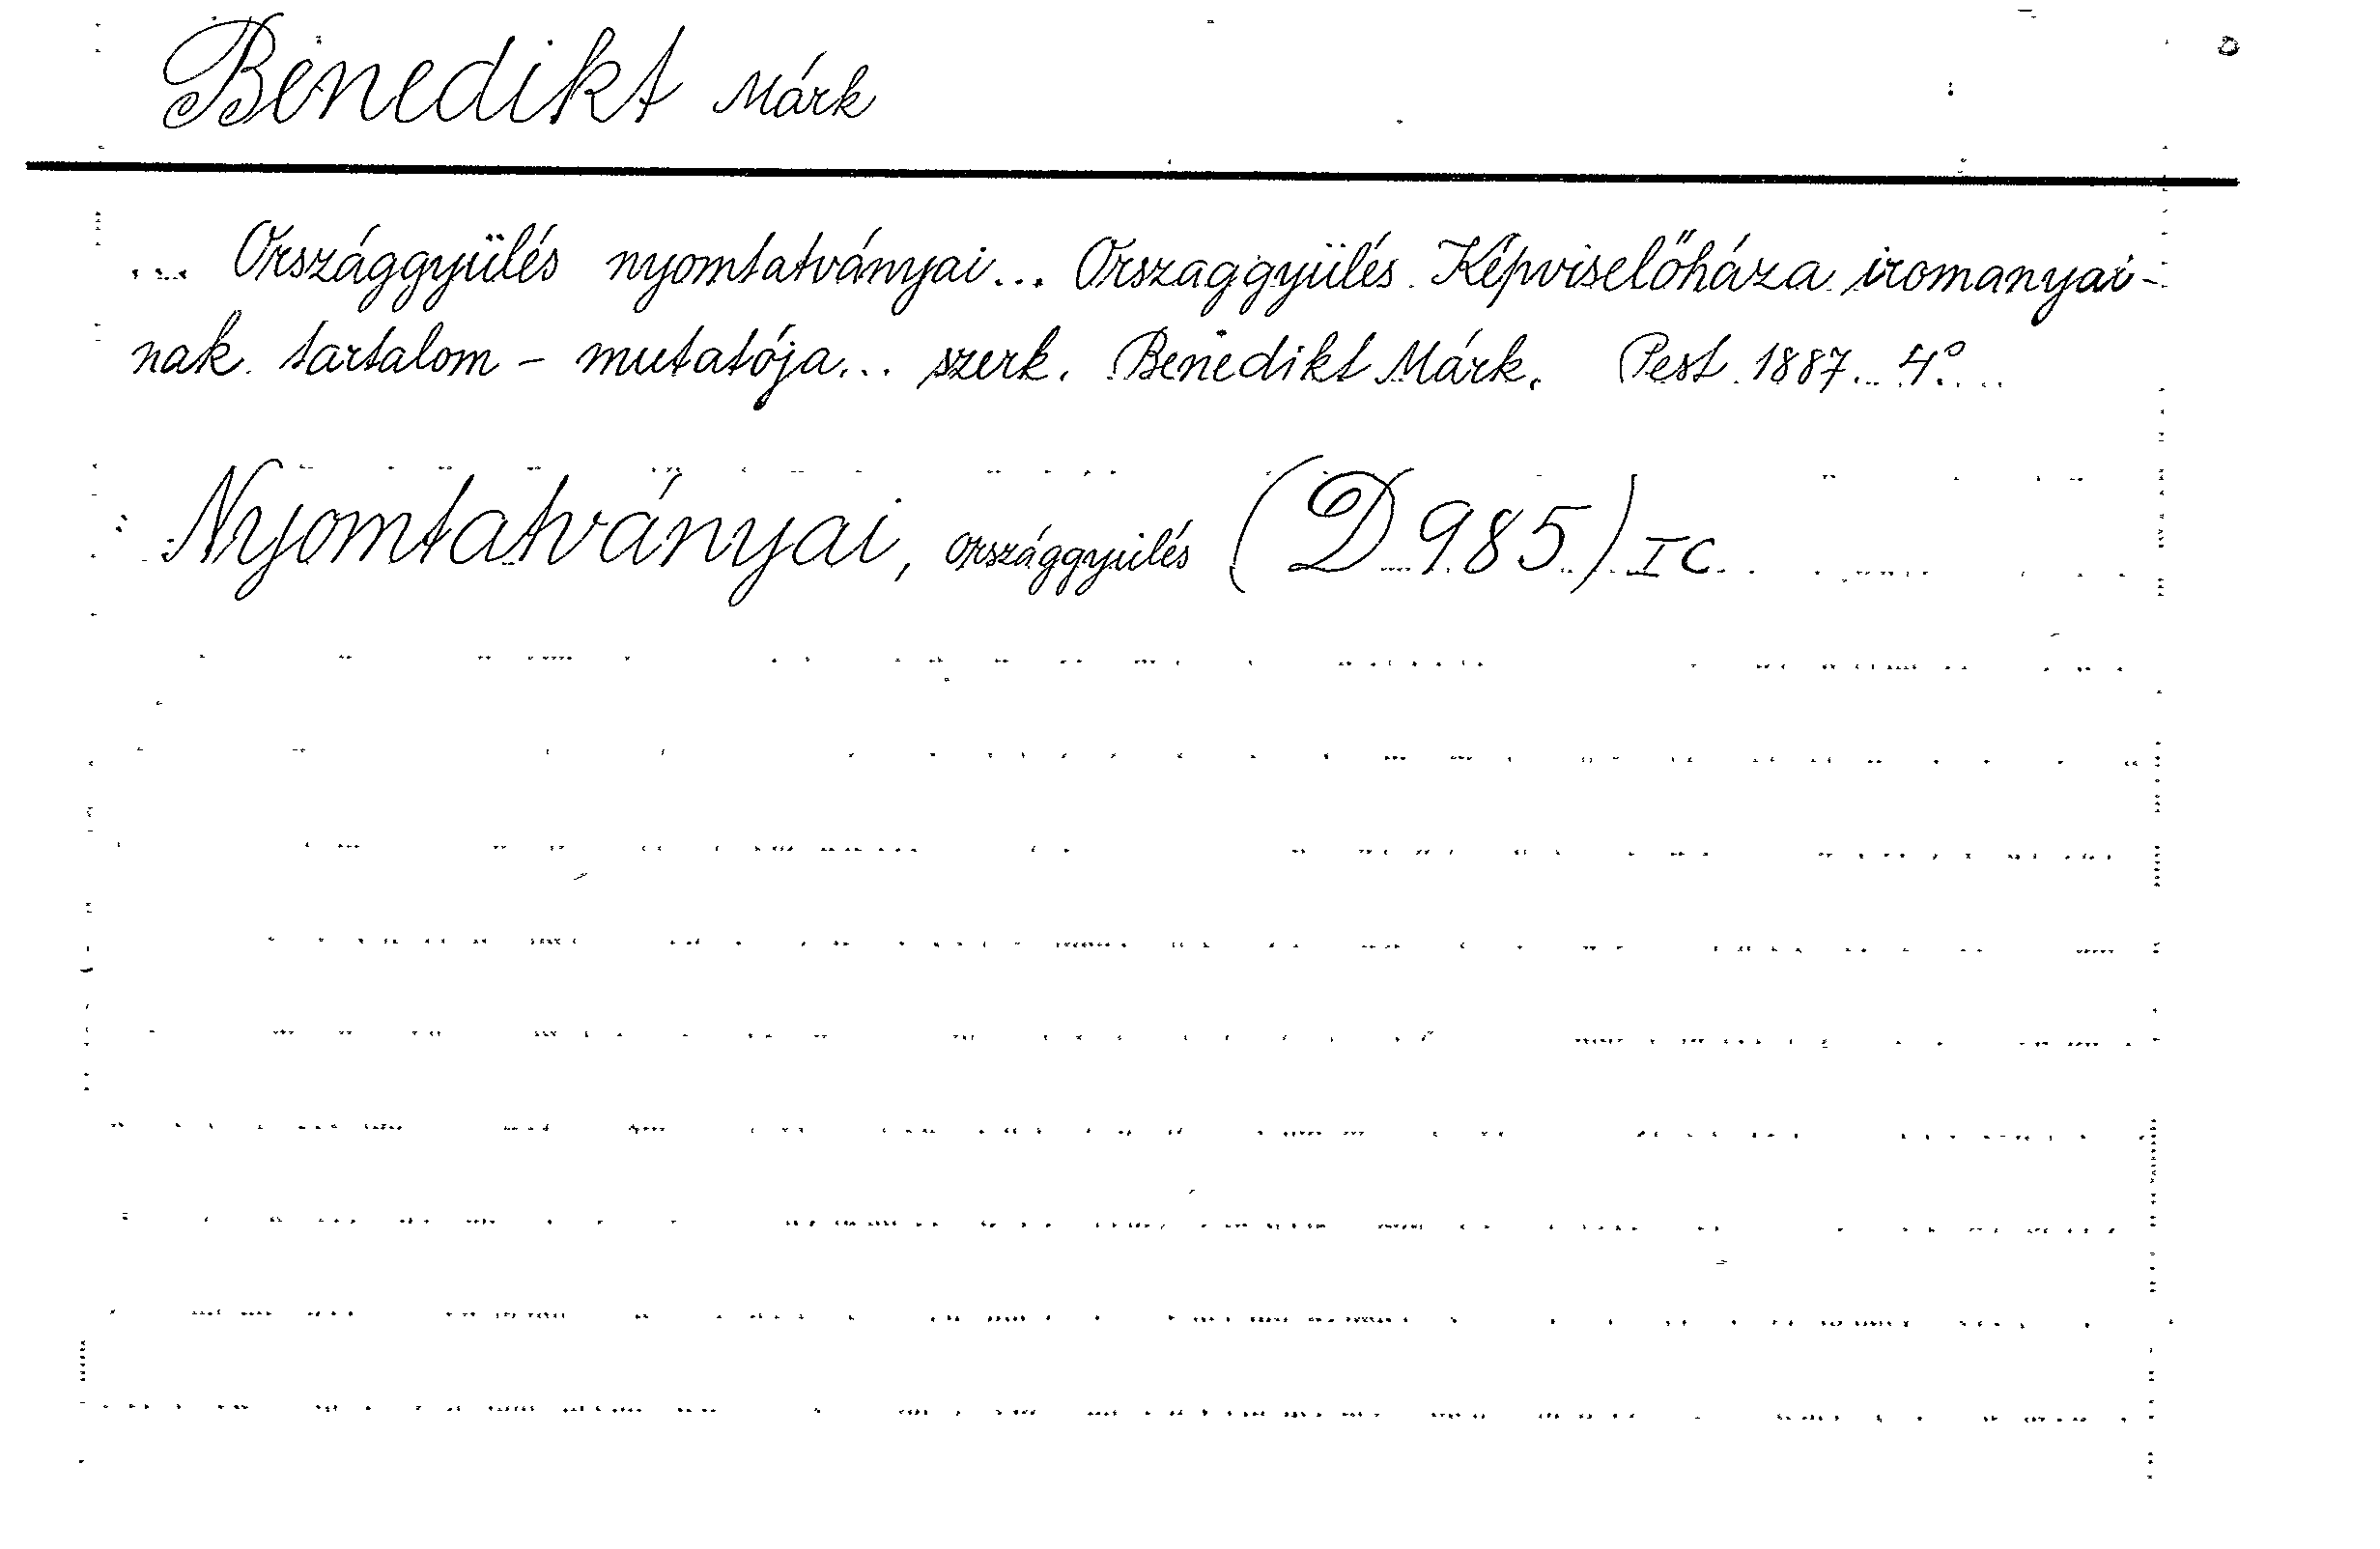 Benedikt Márk
... Országgyülés nyomtatványai... Orszaggyülés Képviselőháza iromanyai-
nak tartalom - mutatója... szerk. Benedikt Márk. Pest 1887. 4°
Nyomtatványai, országgyülés (D 985) IC.